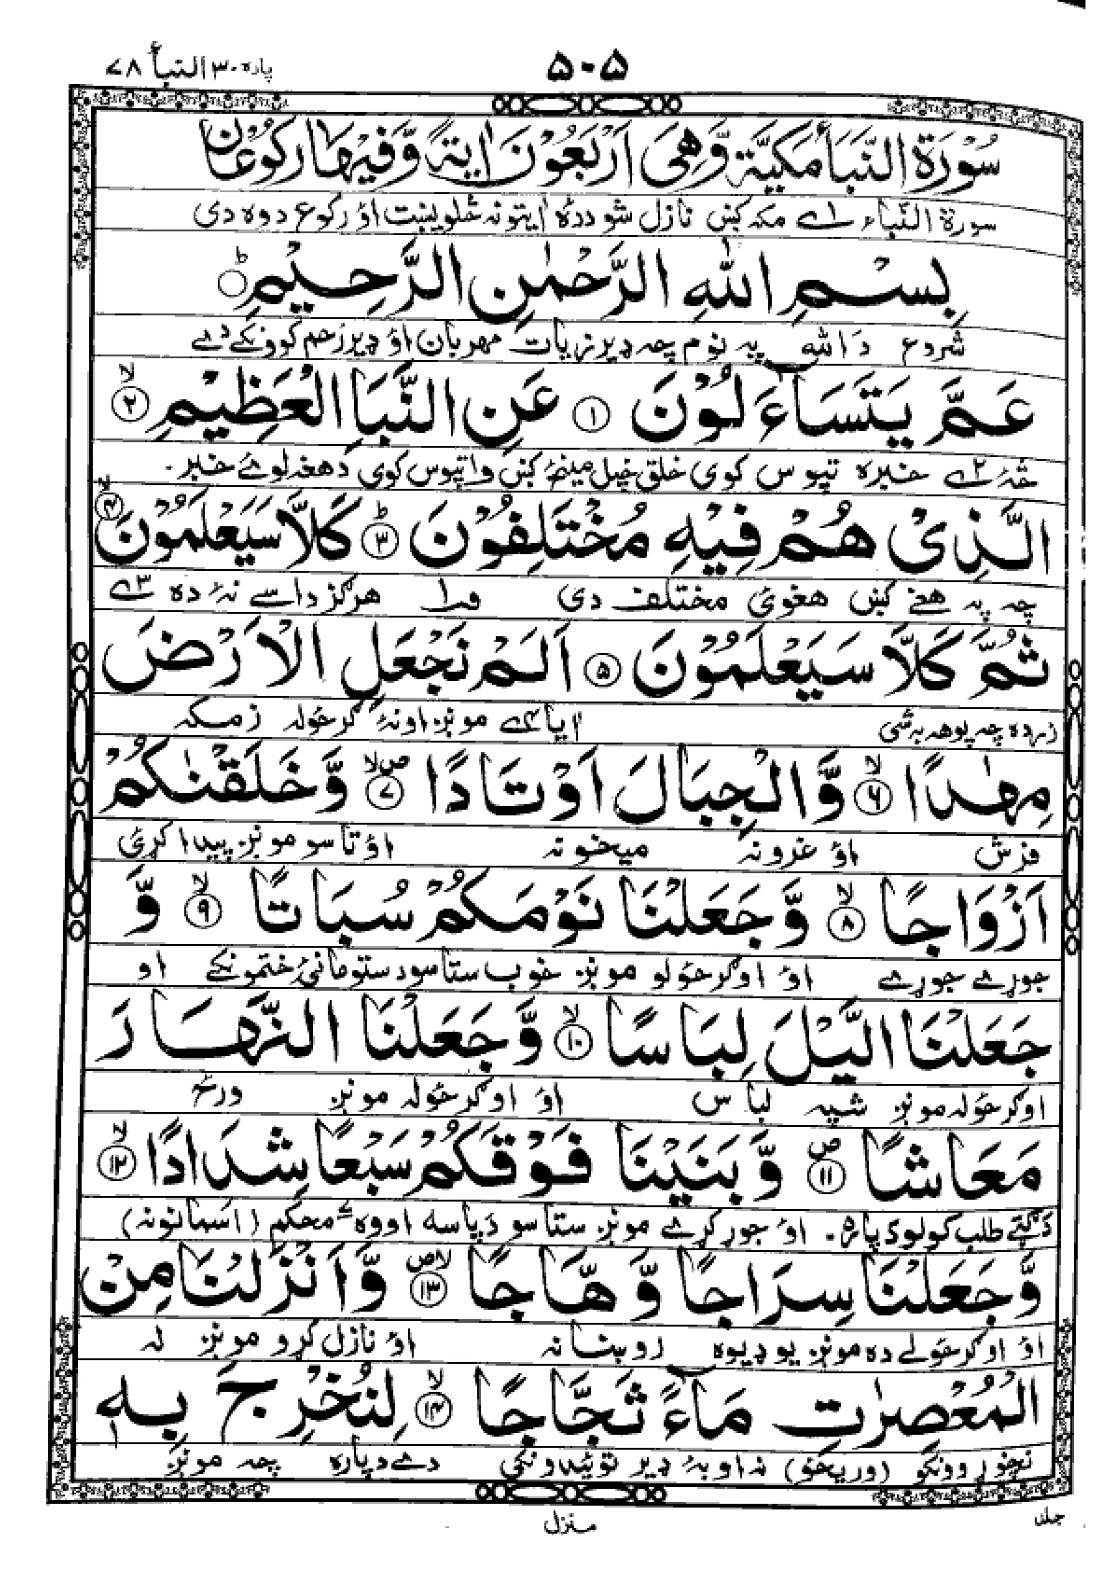 پاره ٣٠ النبأ ٧٨
۵۰۵
سُوْرَةُ النَّبَأِ مَكِّيَّةٌ وَّهِىَ اَرْبَعُوْنَ اٰيَةً وَّفِيْهَا رُكُوْعَانِ
سورة النّباء ١ے مکه کښ نازل شو دده ايتونه څلويښت اؤ رکوع دوه دی
بِسْمِ اللهِ الرَّحْمٰنِ الرَّحِيْمِ ○ ط
شروع دَ الله په نوم چه ډير زيات مهربان اؤ ډير رحم کوونکے دے
عَمَّ يَتَسَآءَلُوْنَ ١ عَنِ النَّبَاِ الْعَظِيْمِ ٢ لا
څۀ ٢ے خبره تپوس کوی خلق خپل مينځ کښ وا تپوس کوی دَ هغه لوۓ خبر۔
الَّذِىْ هُمْ فِيْهِ مُخْتَلِفُوْنَ ٣ ط كَلَّا سَيَعْلَمُوْنَ ٤ لا
چه په هغے کښ هغوی مختلف دی ف١ هرګز داسے نۀ ده ٣ے
ثُمَّ كَلَّا سَيَعْلَمُوْنَ ٥ اَلَمْ نَجْعَلِ الْاَرْضَ
زرده چه پوهه به شی ايا ٤ے مونږ اونۀ ګرځوله زمکه
مِهٰدًا ٦ لا وَّالْجِبَالَ اَوْتَادًا ٧ صلا وَّخَلَقْنٰكُمْ
فرش اؤ غرونه ميخونه اؤ تاسو مونږ پيدا کړئ
اَزْوَاجًا ٨ لا وَّجَعَلْنَا نَوْمَكُمْ سُبَاتًا ٩ لا وَّ
جوړے جوړے اؤ اوګرځولو مونږ خوب ستاسو دستومانئ ختمونکے او
جَعَلْنَا الَّيْلَ لِبَاسًا ١٠ لا وَّجَعَلْنَا النَّهَارَ
اوګرځوله مونږ شپه لباس اؤ اوګرځوله مونږ ورځ
مَعَاشًا ١١ ص وَّبَنَيْنَا فَوْقَكُمْ سَبْعًا شِدَادًا ١٢ لا
دَ ګټے طلب کولو دپاره۔ اؤ جوړ کړے مونږ ستاسو دَپاسه اووه محکم (اسمانونه)
وَّجَعَلْنَا سِرَاجًا وَّهَّاجًا ١٣ لاص وَّاَنْزَلْنَا مِنَ
اؤ اوګرځولے ده مونږ يو ډيوه روښانه اؤ نازل کړو مونږ له
الْمُعْصِرٰتِ مَآءً ثَجَّاجًا ١٤ لا لِّنُخْرِجَ بِهٖ
نچوړوونکو (وريځو) نه اوبۀ ډير توئيدونکی دے دپاره چه مونږ
منزل
جلد